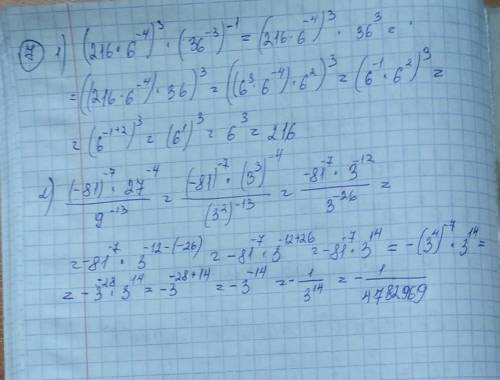 7 1) (216·6⁻⁴)³·(36⁻³)⁻¹ = (216·6⁻⁴)³·36³ =
= ((216·6⁻⁴)·36)³ = ((6³·6⁻⁴)·6²)³ = (6⁻¹·6²)³ =
= (6⁻¹⁺²)³ = (6¹)³ = 6³ = 216
2) (-81)⁻⁷·27⁻⁴ / 9⁻¹³ = (-81)⁻⁷·(3³)⁻⁴ / (3²)⁻¹³ = -81⁻⁷·3⁻¹² / 3⁻²⁶ =
= -81⁻⁷·3⁻¹²⁻⁽⁻²⁶⁾ = -81⁻⁷·3⁻¹²⁺²⁶ = -81⁻⁷·3¹⁴ = -(3⁴)⁻⁷·3¹⁴ =
= -3⁻²⁸·3¹⁴ = -3⁻²⁸⁺¹⁴ = -3⁻¹⁴ = -1/3¹⁴ = -1/4782969